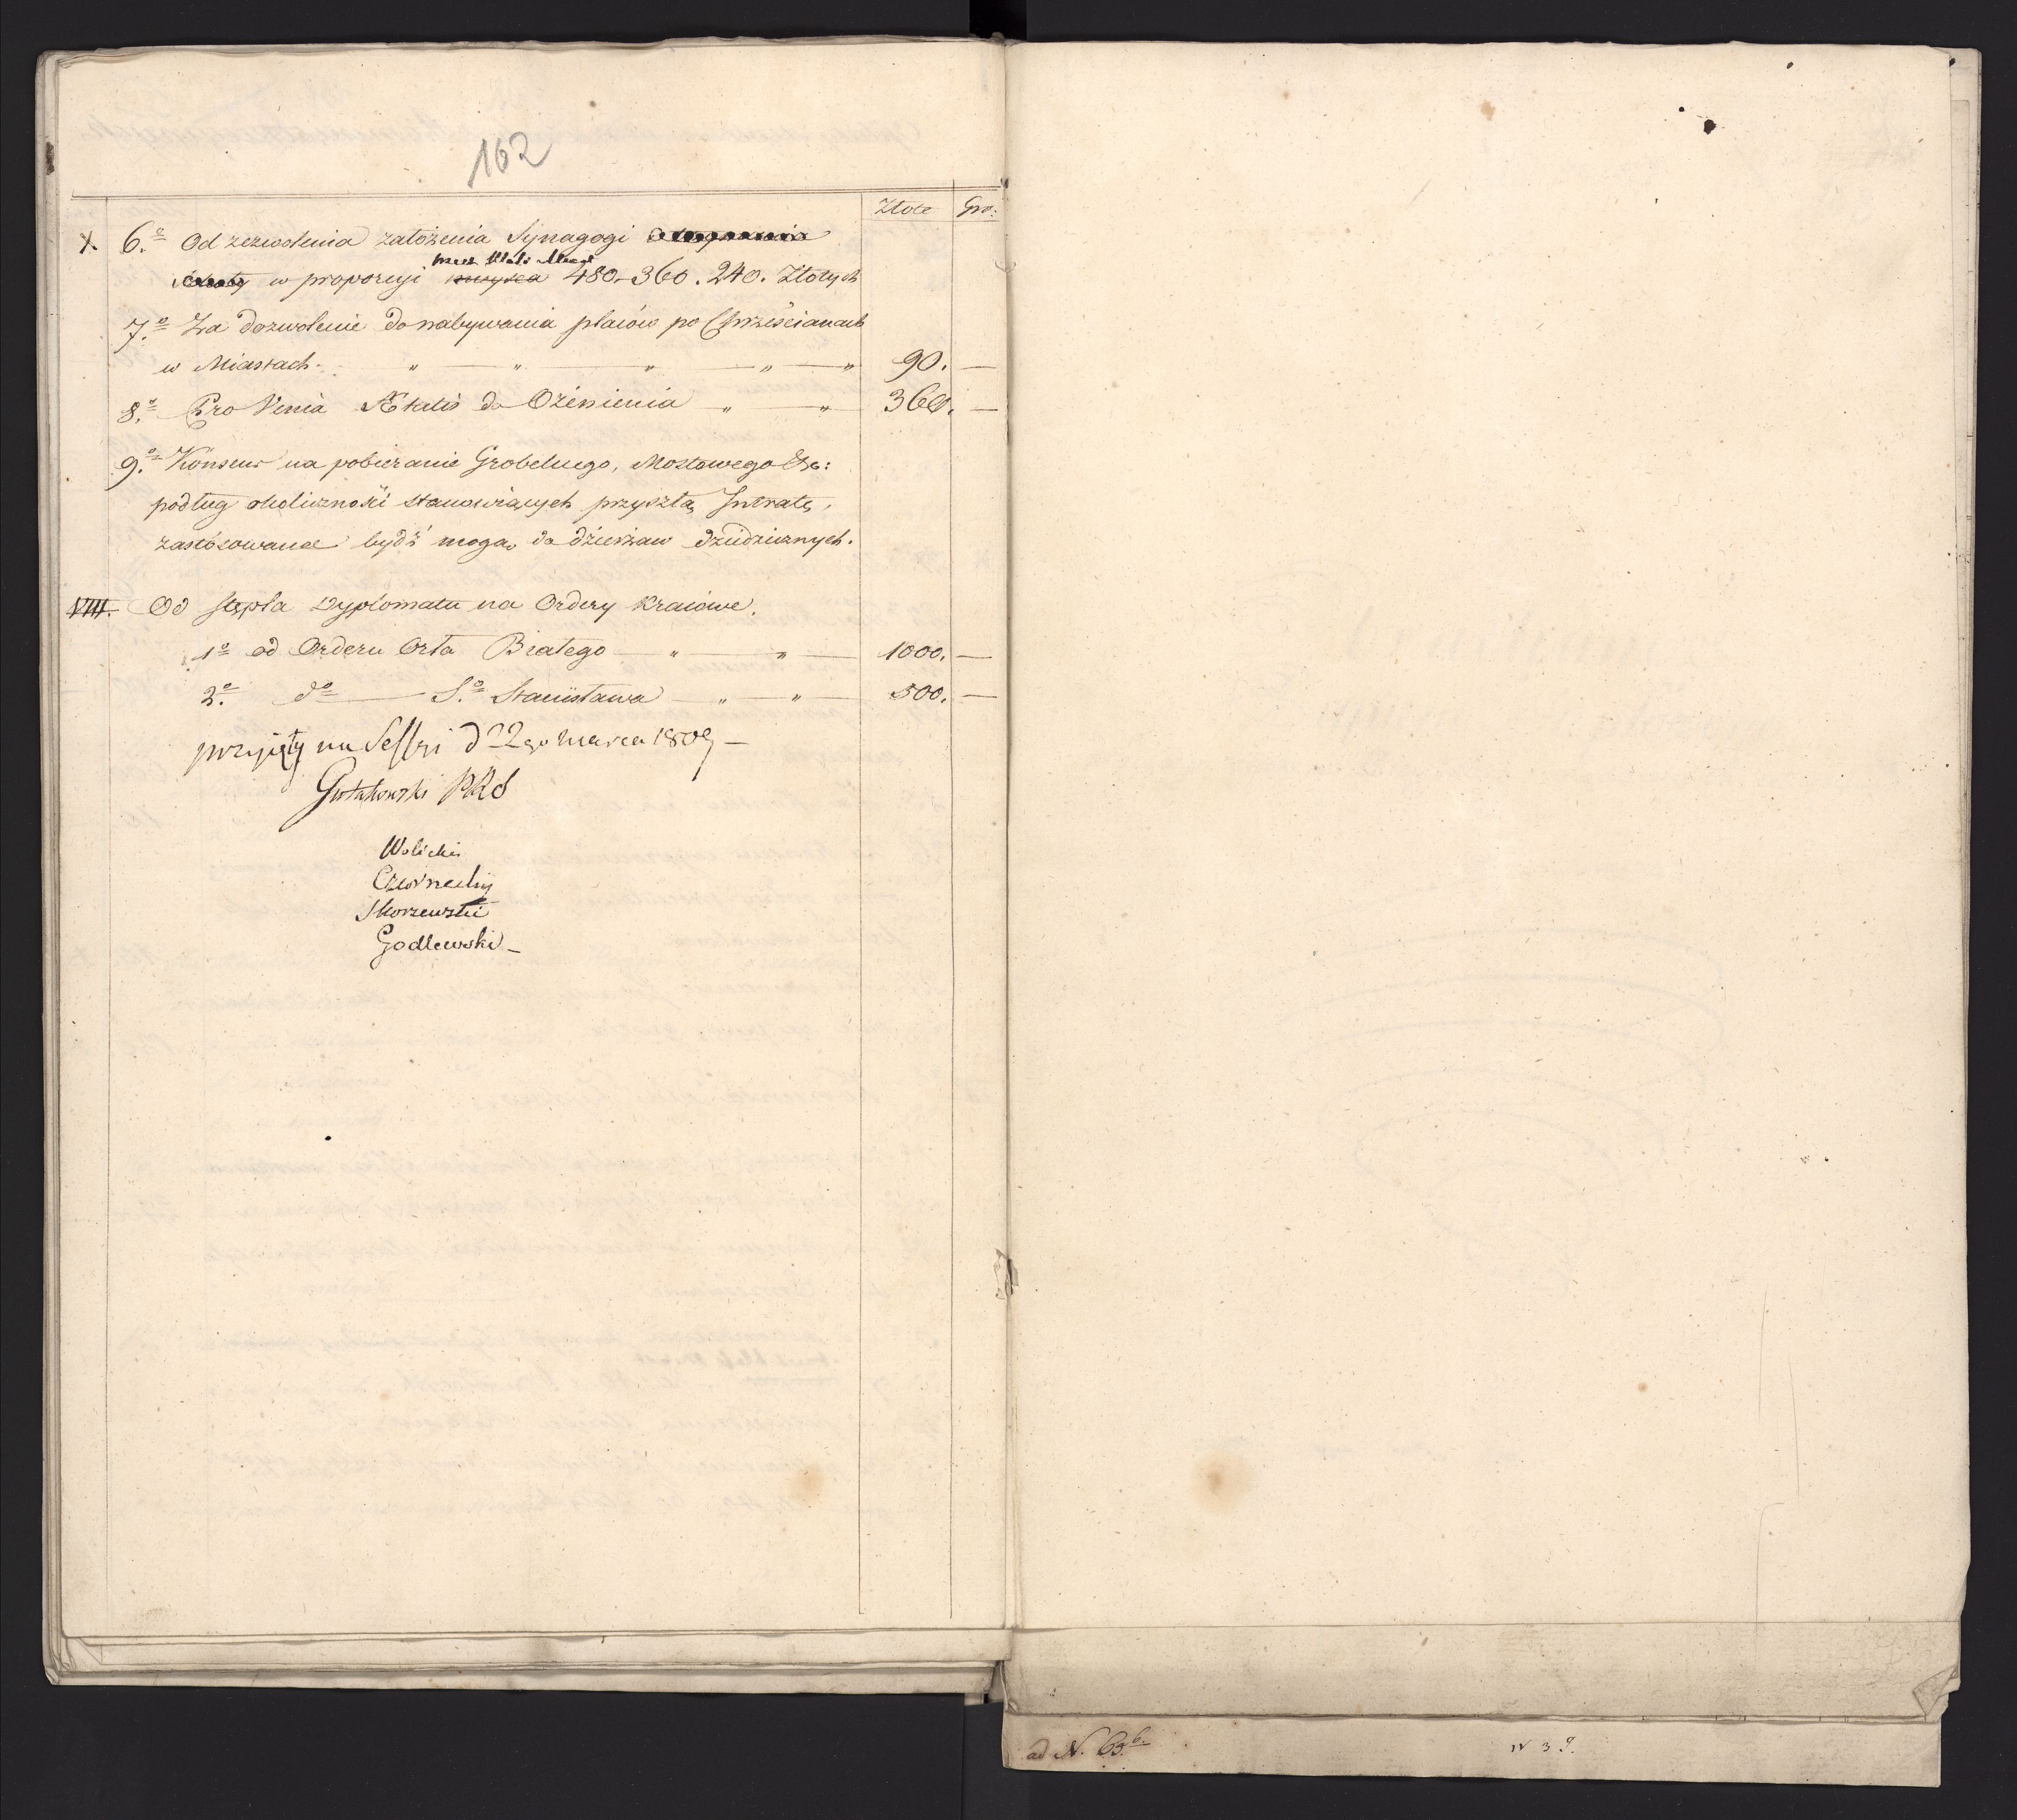 162
Złote Gro:
X. 6.º Od zezwolenia założenia Synagogi
w proporcyi 480.-360.240. Złotych
7.º Za dozwolenie do nabywania placów po Chrześcianach
w Miastach. " " " " " 90. —
8.º Pro Venia Ætatis do Ożenienia " " 360. —
9.º Konsens na pobieranie Grobelnego, Mostowego &c:
podług okoliczności stanowiących przyszłą Intratę,
zastosowane bydź mogą do dzierżaw dziedzicznych.
VIII. Od stępla Dyplomatu na Ordery Kraiowe.
1º od Orderu Orła Białego " " 1000. —
2.º dº S.º Stanisława " " 500. —
przyięty na Sessyi d 22go marca 1809 —
Gutakowski PRS
Wolicki
Czarnecki
Skorzewski
Godlewski —
ad N. 63 b.
N 39.